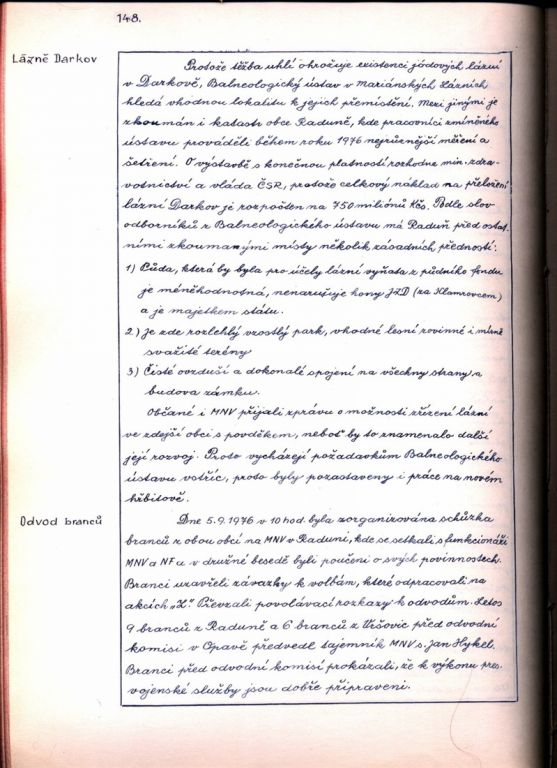 148.
Lázně Darkov
Protože těžba uhlí ohrožuje existenci jódových lázní
v Darkově, Balneologický ústav v Mariánských Lázních
hledá vhodnou lokalitu k jejich přemístění. Mezi jinými je
zkoumán i katastr obce Raduně, kde pracovníci zmíněného
ústavu prováděli během roku 1976 nejrůznější měření a
šetření. O výstavbě s konečnou platností rozhodne min. zdra-
votnictví a vláda ČSR, protože celkový náklad na přeložení
lázní Darkov je rozpočten na 750 miliónů Kčs. Podle slov
odborníků z Balneologického ústavu má Raduň před ostat.
ními zkoumanými místy několik zásadních předností:
1) Půda, která by byla pro účely lázní vyňata z půdního fondu
je méněhodnotná, nenarušuje hony JZD (za Klamrovcem)
a je majetkem státu.
2) Je zde rozlehlý vzrostlý park, vhodné lesní rovinné i mírně
svažité terény
3) Čisté ovzduší a dokonalé spojení na všechny strany a
budova zámku.
Občané i MNV přijali zprávu o možnosti zřízení lázní
ve zdejší obci s povděkem, neboť by to znamenalo další
její rozvoj. Proto vycházejí požadavkům Balneologického
ústavu vstříc, proto byly pozastaveny i práce na novém
hřbitově.
Odvod branců
Dne 5.9.1976 v 10 hod. byla zorganizována schůzka
branců z obou obcí na MNV v Raduni, kde se setkali s funkcionáři
MNV a NF a v družné besedě byli poučeni o svých povinnostech.
Branci uzavřeli závazky k volbám, které odpracovali na
akcích „Z". Převzali povolávací rozkazy k odvodům. Letos
9 branců z Raduně a 6 branců z Vršovic před odvodní
komisi v Opavě předvedl tajemník MNV s. Jan Hykel.
Branci před odvodní komisí prokázali, že k výkonu pres.
vojenské služby jsou dobře připraveni.